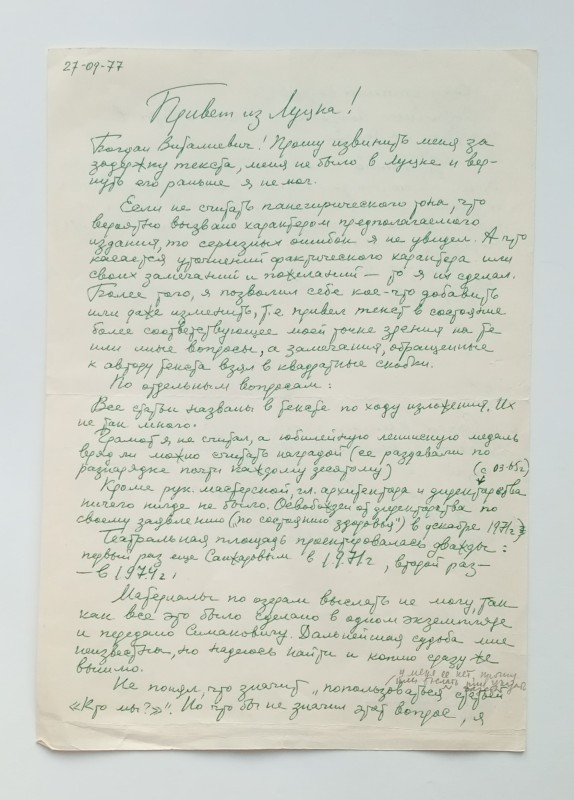 27-09-77
Привет из Луцка!
Богдан Виталиевич! Прошу извинить меня за
задержку текста, меня не было в Луцке и вер-
нуть его раньше я не мог.
Если не считать панегирического тона, что
вероятно вызвано характером предполагаемого
издания, то серьезных ошибок я не увидел. А что
касается уточнений фактического характера или
своих замечаний и пожеланий – то я их сделал.
Более того, я позволил себе кое-что добавить
или даже изменить, т.е привел текст в состояние
более соответствующее моей точке зрения на те
или иные вопросы, а замечания, обращенные
к автору текста взял в квадратные скобки.
По отдельным вопросам:
Все статьи названы в тексте по ходу изложения. Их
не так много.
Грамот я, не считал, а юбилейную ленинскую медаль
вряд ли можно считать наградой (ее раздавали по
разнарядке почти каждому десятому) (с 03-65г)
Кроме рук. мастерской, гл. архитектора и директорства
ничего нигде не было. Освобожден от директорства по
своему заявлению ("по состоянию здоровья") в декабре 1971г
Театральная площадь проектировалась дважды:
первый раз еще в 1971г, второй раз –
– в 1974г.
Материалы по озерам выслать не могу, так
как все это было сделано в одном экземпляре
и передано Симаковичу. Дальнейшая судьба мне
неизвестна, но надеюсь найти и копию сразу же
вышлю.
у меня ее нет, прошу
или выслать или указать
Не понял, что значит "попользоваться статьей
«Кто мы?»". Но что бы не значил этот вопрос, я